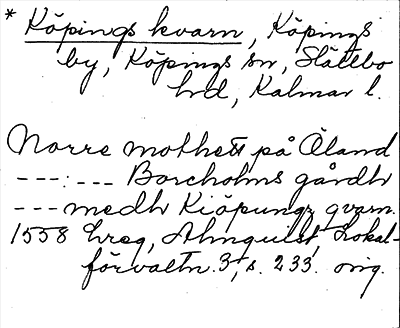 * Köpings kvarn, Köpings
by, Köpings sn, Slättbo
hd, Kalmar l.
Norre mothett på Öland
---:--- Borcholms gårdh
---medh Kiöpungz qvarn.
1558 Ereg, Almquist, Lokal-
förvaltn. 3, s. 233. orig.